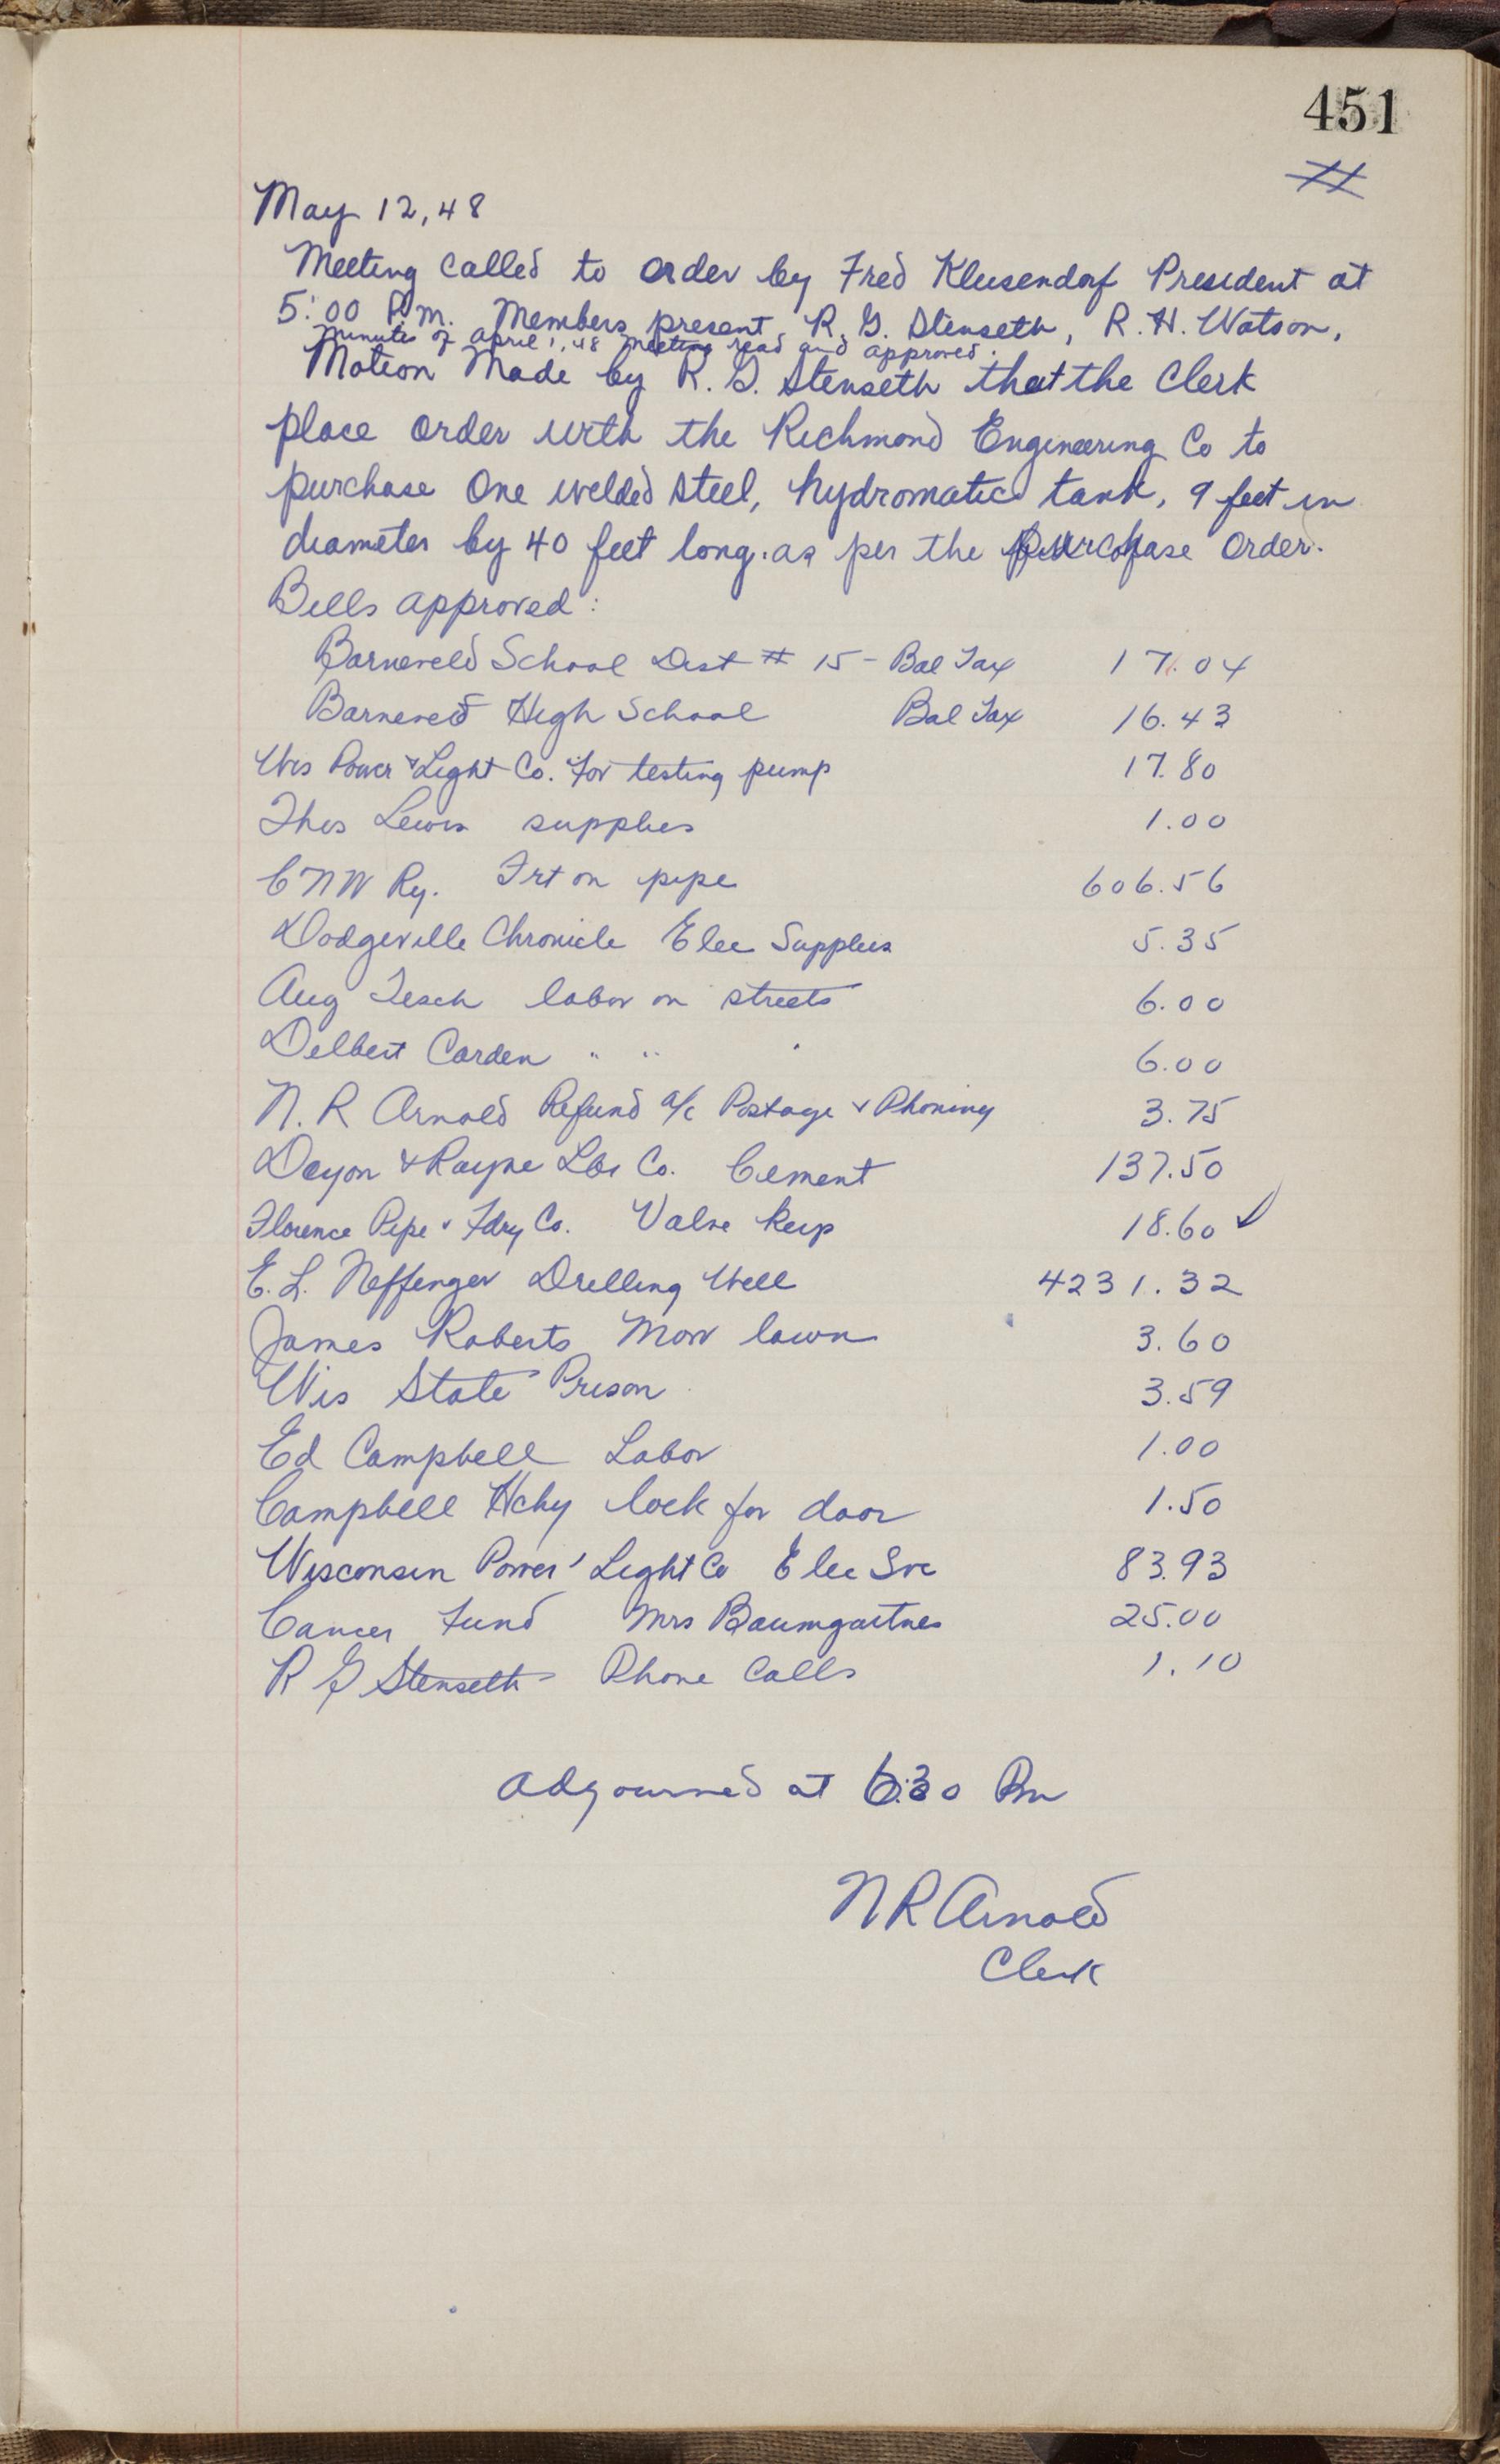 451
#
May 12, 48
Meeting called to order by Fred Klusendorf President at
5:00 P.m. Members present, R. G. Stenseth, R. H. Watson,
Minutes of April 1, 48 meeting read and approved.
Motion Made by R. G. Stenseth that the Clerk
place order with the Richmond Engineering Co to
purchase One welded steel, hydromatic tank, 9 feet in
diameter by 40 feet long. as per the purchase order.
Bills approved:
Barneveld School Dist # 15 - Bal Tax 17.04
Barneveld High School Bal Tax 16.43
Wis Power & Light Co. For testing pump 17.80
Thos Lewis supplies 1.00
CNW Ry. Frt on pipe 606.56
Dodgeville Chronicle Elec Supplies 5.35
Aug Tesch labor on streets 6.00
Delbert Carden " " " 6.00
N. R Arnold Refund a/c Postage & Phoning 3.75
& Lbr Co. Cement 137.50
Florence Pipe & Fdry Co. Valve Keys 18.60 ✓
E. L. Neffenger Drilling Well 4231.32
James Roberts Mow lawn 3.60
Wis State Prison 3.59
Ed Campbell Labor 1.00
Campbell lock for door 1.50
Wisconsin Power & Light Co Elec Svc 83.93
Cancer Fund Mrs Baumgartner 25.00
R G Stenseth Phone Calls 1.10
Adjourned at 6:30 Pm
N R Arnold
Clerk